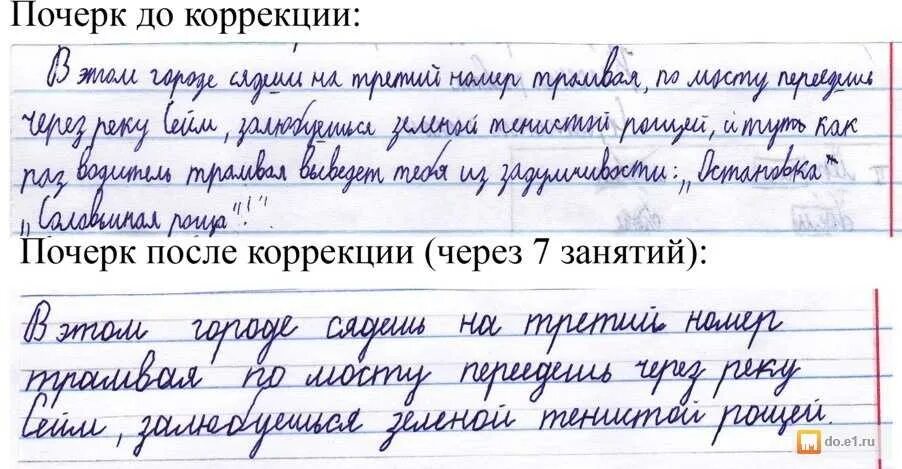 Почерк до коррекции:
В этом городе сядеш на третий номер трамвая, по мосту переедешь
через реку Сейм, залюбуешься зеленой тенистой рощей, и тутъ как
раз водитель трамвая выведет тебя из задумчивости: „Остановка"
„Соловьиная роща"!"
Почерк после коррекции (через 7 занятий):
В этом городе сядешь на третий номер
трамвая по мосту переедешь через реку
Сейм, залюбуешься зеленой тенистой рощей.
do.e1.ru